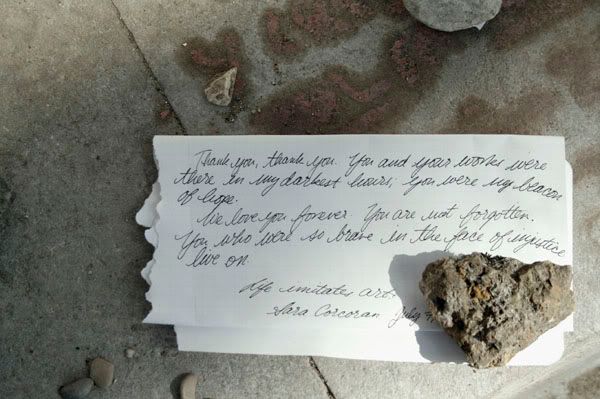 Thank you, thank you. You and your works were
there in my darkest hours; you were my beacon
of hope.
We love you forever. You are not forgotten.
You who were so brave in the face of injustice
live on.
Life imitates art.
Sara Corcoran July